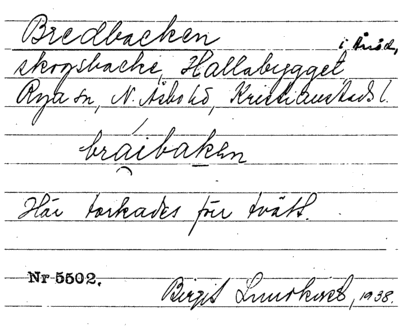 Bredbacken
skogsbacke, Hallabygget
Rya sn, N. Åsbo hd, Kristianstads l.
braibaken
Här torkades för tvätt.
Nr 5502.
Birgit 1938.